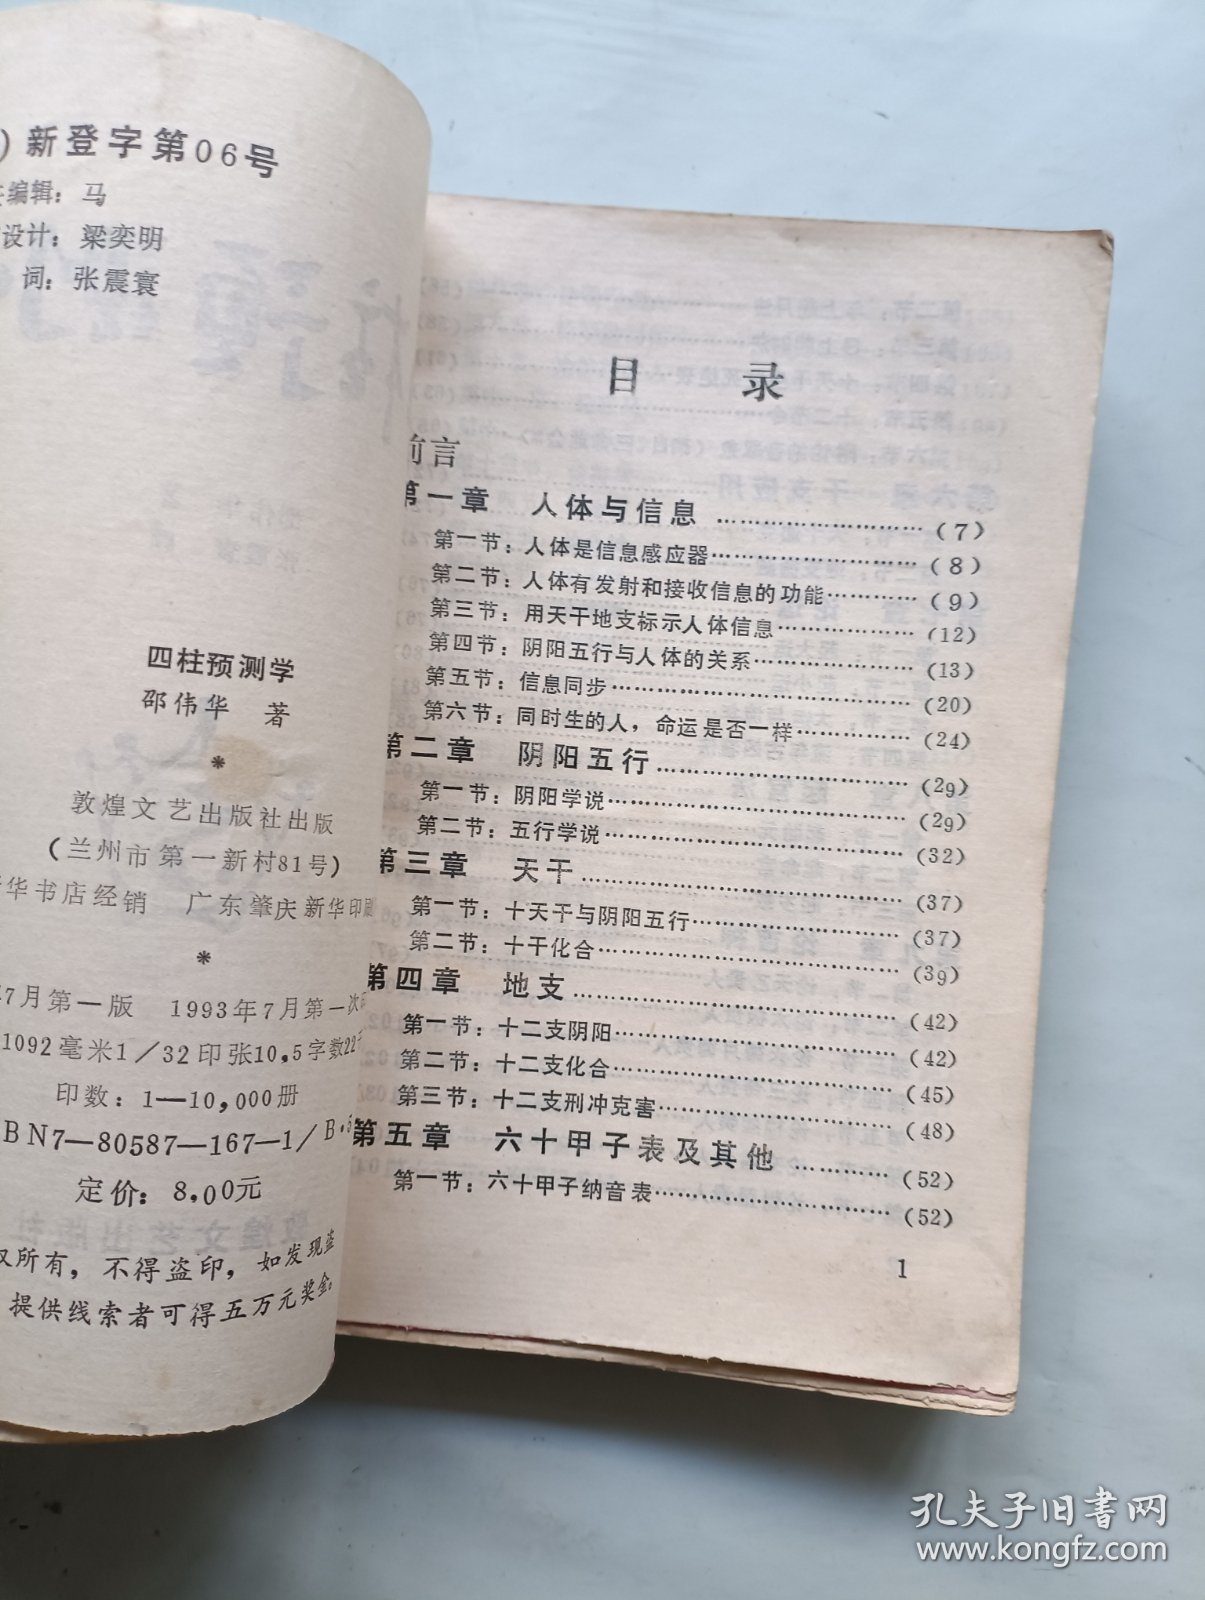 )新登字第06号
编辑：马
设计：梁奕明
词：张震寰
四柱预测学
邵伟华 著
*
敦煌文艺出版社出版
(兰州市第一新村81号)
华书店经销 广东肇庆新华印刷
*
7月第一版 1993年7月第一次
1092毫米1／32印张10.5字数22
印数：1—10,000册
BN7—80587—167—1/B·5
定价：8.00元
权所有，不得盗印，如发现盗
提供线索者可得五万元奖金。
目 录
前言
第一章 人体与信息…………………(7)
第一节：人体是信息感应器…………………(8)
第二节：人体有发射和接收信息的功能…………(9)
第三节：用天干地支标示人体信息……………(12)
第四节：阴阳五行与人体的关系………………(13)
第五节：信息同步……………………………(20)
第六节：同时生的人，命运是否一样…………(24)
第二章 阴阳五行………………………(29)
第一节：阴阳学说……………………………(29)
第二节：五行学说……………………………(32)
第三章 天干……………………………(37)
第一节：十天干与阴阳五行…………………(37)
第二节：十干化合……………………………(39)
第四章 地支……………………………(42)
第一节：十二支阴阳…………………………(42)
第二节：十二支化合…………………………(45)
第三节：十二支刑冲克害……………………(48)
第五章 六十甲子表及其他…………(52)
第一节：六十甲子纳音表……………………(52)
1
孔夫子旧书网
www.kongfz.com